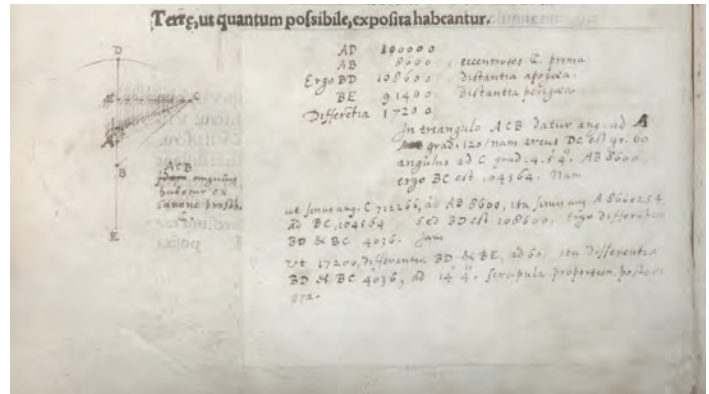 Terrę, ut quantum possibile, exposita habeantur.
AD 100000
AB 8600, eccentrotes ☾. prima
Ergo BD 108600 Distantia apogæa.
BE 91400 Distantia perigæa
Differētia 17200
In triangulo ACB datur ang. ad A
grad. 120/nam arcus DC est gr. 60
angulus ad C grad. 4. 5' 4". AB 8600
ergo BC est 104564. Nam
ut sinus ang. C 712266, ad AB 8600, ita sinus ang. A 8660254
ad BC, 104564 sed BD est 108600, Ergo differentia
BD & BC 4036. Jam
ut 17200, differentia BD & BE, ad 60, ita differentia
BD & BC 4036, ad 14' 4". scrupula proportion.
D
C
A
B
E
ACB
angulus,
habetur ex
canone prosth.